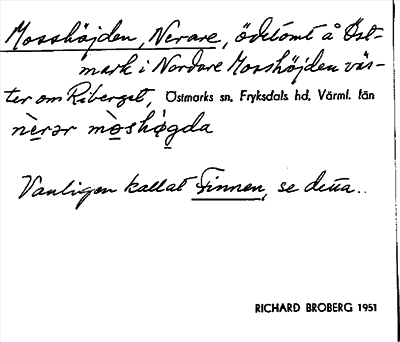 Mosshöjden, Nerare, ödetomt å Öst-
mark i Nordare Mosshöjden väs-
ter om Riberget, Östmarks sn, Fryksdals hd, Värml. län
nèrər mòshø̀gda
Vanligen kallat Finnen, se detta..
RICHARD BROBERG 1951